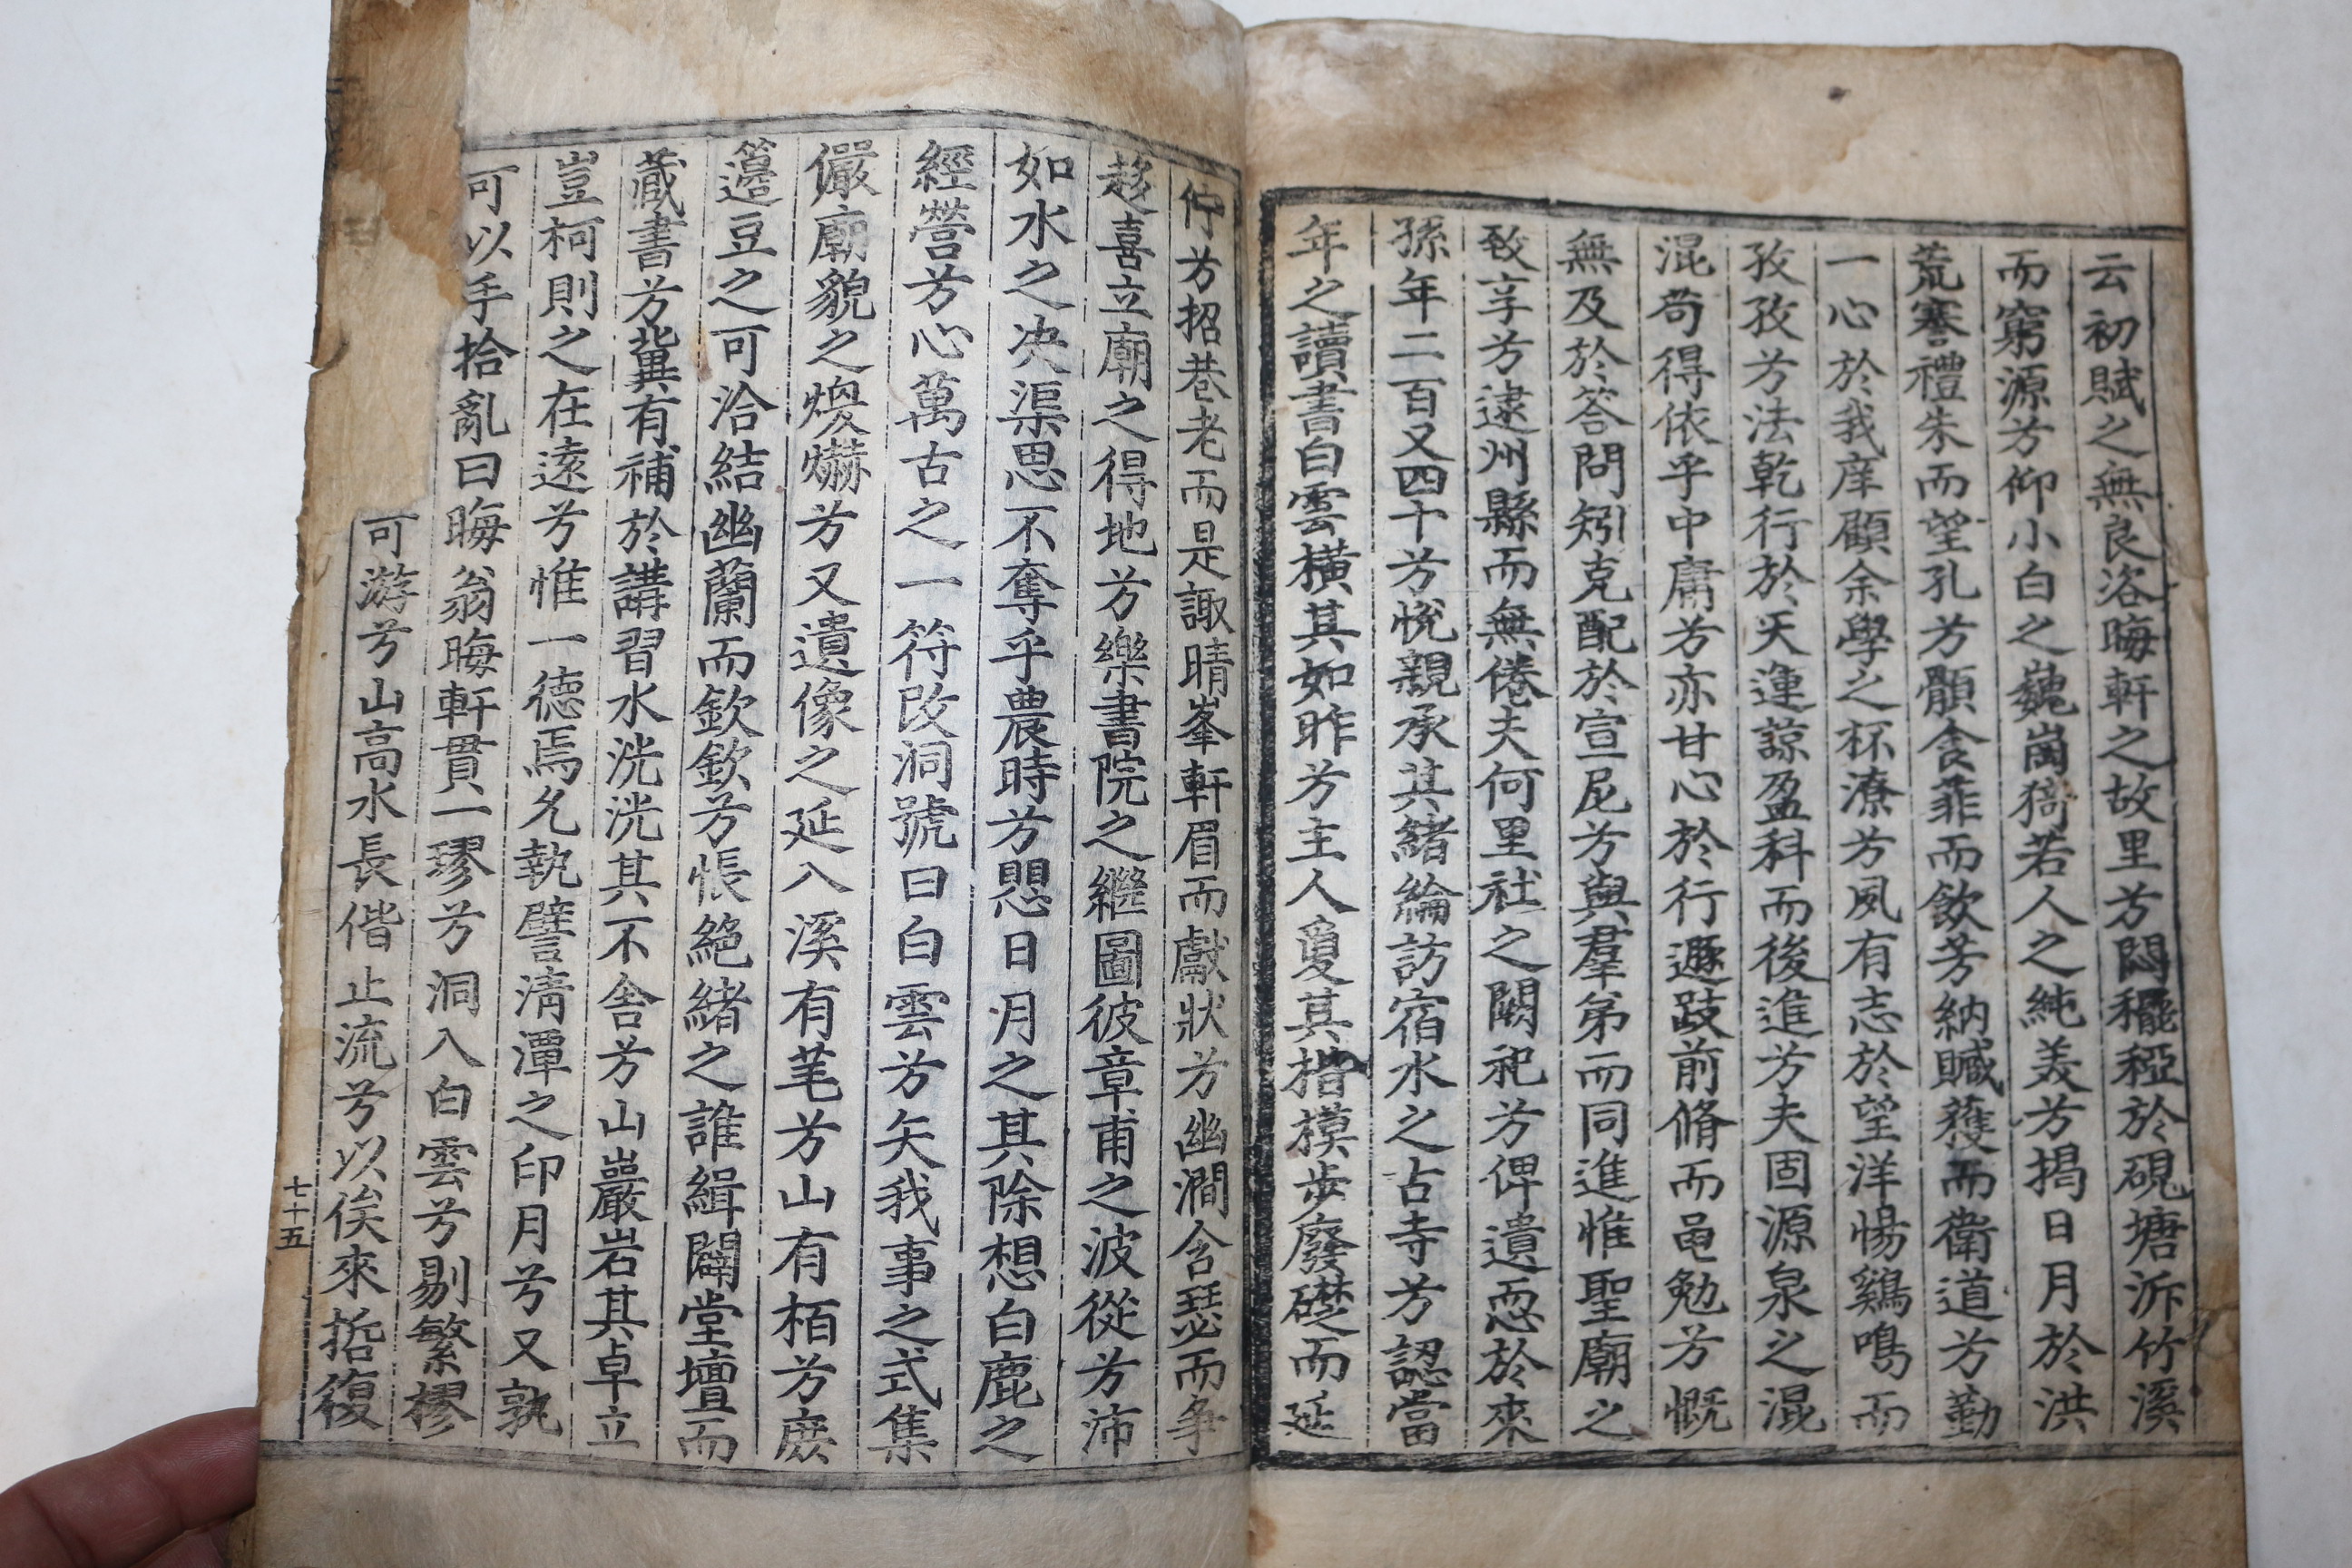 云初賦之無良洛晦軒之故里芳悶穲稏於硯塘泝竹溪
而窮源芳仰小白之巍崗猗若人之純美芳揭日月於洪
荒褰禮朱而望孔芳顝含菲而飮芳納贓蔉而衛道芳勤
一心於我庠顧余學之杯潦芳風有志於望洋惕鷄鳴而
孜孜芳法乾行於天運諒盈科而後進芳夫固源泉之混
混苟得依乎中庸芳亦甘心於行遯跂前脩而黽勉芳慨
無及於答問矧克配於宣尼芳與羣弟而同進惟聖廟之
致享芳逮州縣而無倦夫何里社之闕祀芳俾遺恧於來
孫年二百又四十芳悅親承其緖綸訪宿水之古寺芳認當
年之讀書白雲橫其如昨芳主人𡕥其揩模步廢礎而延
佇芳招巷老而是諏晴峯軒眉而獻狀芳幽澗含瑟而爭
趍喜立廟之得地芳樂書院之繼圖彼章甫之波從芳沛
如水之決渠思不奪乎農時芳愳日月之其除想白鹿之
經營芳心萬古之一符改洞號曰白雲芳矢我事之式集
儼廟貌之煥爀芳又遺像之延入溪有芼芳山有栢芳庶
籩豆之可洽結幽蘭而欽欽芳悵絕緖之誰緝闢堂壇而
藏書芳冀有補於講習水洸洸其不舍芳山巖岩其卓立
豈柯則之在遠芳惟一德焉允執譬淸潭之印月兮又孰
可以手拾亂曰晦翁晦軒貫一璆兮洞入白雲兮剔繁樛
可游兮山高水長偕止流兮以俟來哲復
七十五